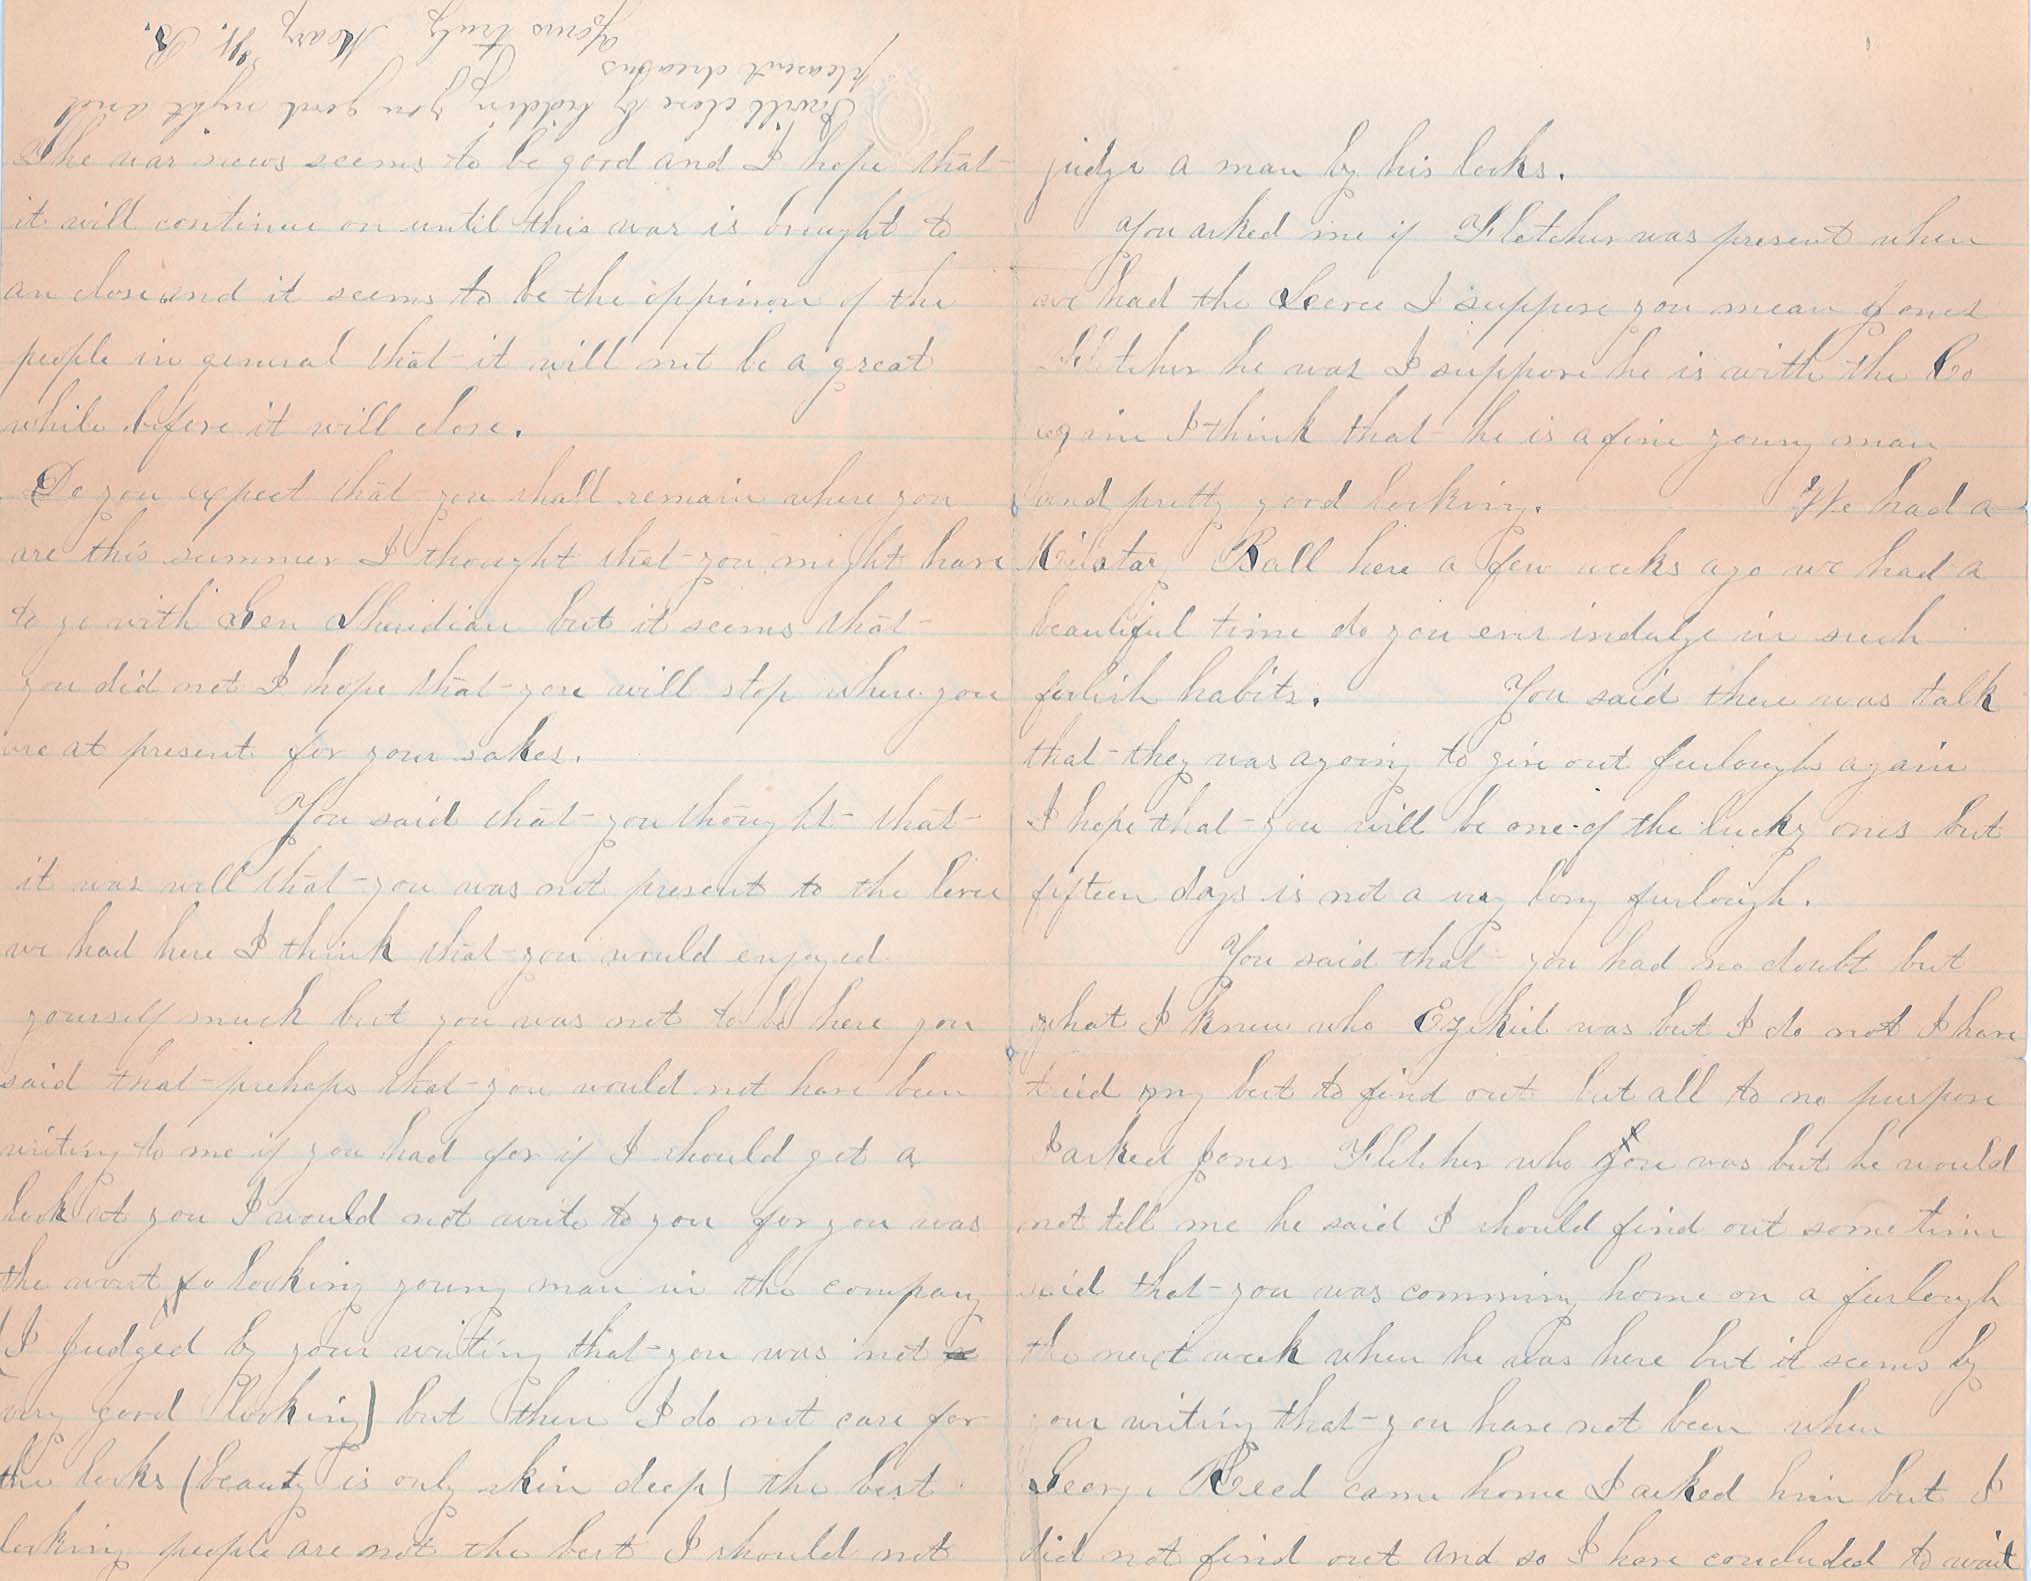 The war news seems to be good and I hope that
it will continue on until this war is brought to
an close and it seems to be the oppinion of the
people in general that it will not be a great
while before it will close.
Do you expect that you shall remain where you
are this summer I thought that you might have
to go with Gen Sheridian but it seems that
you did not I hope that you will stop where you
are at present for your sakes.
You said that you thought that
it was well that you was not present to the levee
we had here I think that you would enjoyed
yourself much but you was not to be here you
said that prehaps that you would not have been
writing to me if you had for if I should get a
look at you I would not write to you for you was
the worst looking young man in the company
(I Judged by your writing that you was not
very good looking) but then I do not care for
the looks (beauty is only skin deep) the best
looking people are not the best I should not
judge a man by his looks.
You asked me if Fletcher was present when
we had the Leevee I suppose you mean Jones
Fletcher he was I suppose he is with the Co
again I think that he is a fine young man
and pretty good looking. We had a
Milatary Ball here a few weeks ago we had a
beautiful time do you ever indulge in such
foolish habits. You said there was talk
that they was agoing to give out furloughs again
I hope that you will be one of the lucky ones but
fifteen days is not a very long furlough.
You said that you had no doubt but
what I knew who Ezikiel was but I do not I have
tried my best to find out but all to no purpose
I asked Jones Fletcher who you was but he would
not tell me he said I should find out some time
said that you was comming home on a furlough
the next week when he was here but it seems by
your writing that you have not been when
George Reed came home I asked him but I
did not find out and so I have concluded to wait
I will close by bidding you good night and
pleasent dreams
Yours truly Mary H. R.